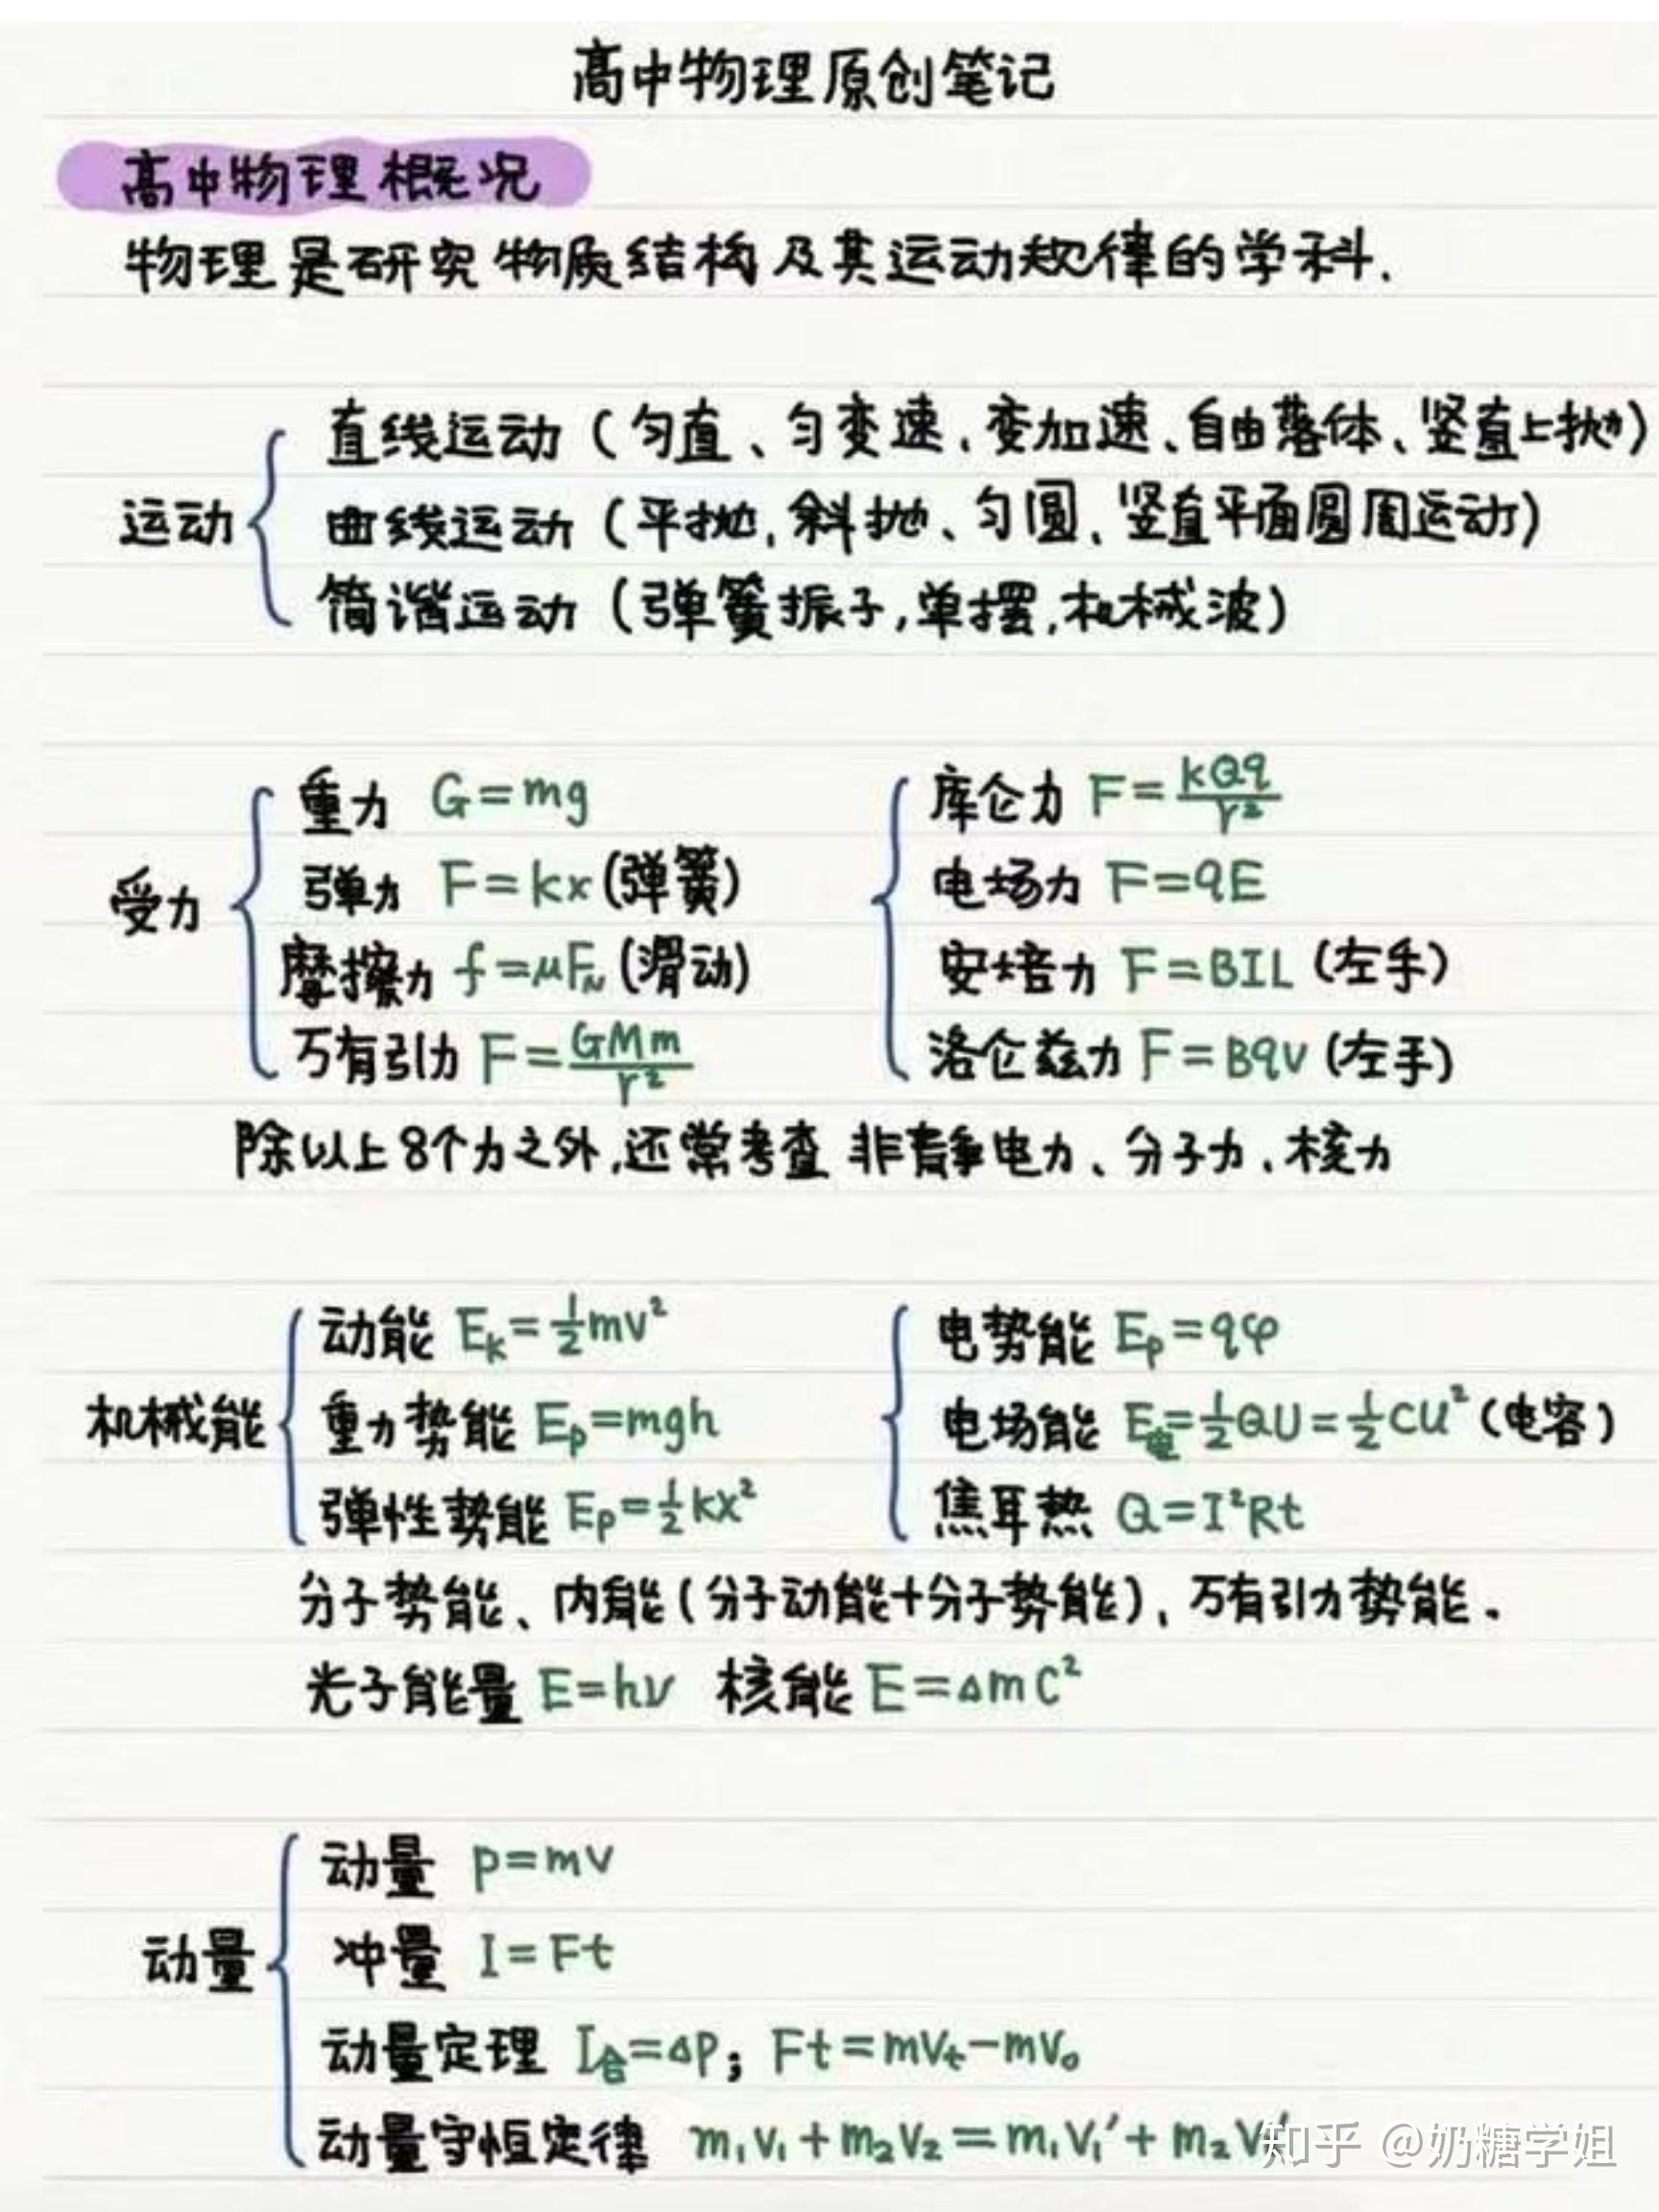 高中物理原创笔记
高中物理概况
物理是研究物质结构及其运动规律的学科.
运动
直线运动（匀直、匀变速、变加速、自由落体、竖直上抛）
曲线运动（平抛，斜抛、匀圆、竖直平面圆周运动）
简谐运动（弹簧振子，单摆，机械波）
受力
重力 G=mg
弹力 F=kx(弹簧)
摩擦力 f=μF_N(滑动)
万有引力 F=GMm/r²
库仑力 F=kQq/r²
电场力 F=qE
安培力 F=BIL (左手)
洛仑兹力 F=Bqv (左手)
除以上8个力之外，还常考查 非静电力、分子力、核力
机械能
动能 E_k=½mv²
重力势能 E_p=mgh
弹性势能 E_p=½kx²
电势能 E_p=qφ
电场能 E_电=½QU=½CU² (电容)
焦耳热 Q=I²Rt
分子势能、内能(分子动能+分子势能)、万有引力势能.
光子能量 E=hν 核能 E=△mC²
动量
动量 p=mv
冲量 I=Ft
动量定理 I_合=△P; Ft=mV_t-mV₀
动量守恒定律 m₁v₁+m₂v₂=m₁v₁′+m₂v₂′
知乎 @奶糖学姐